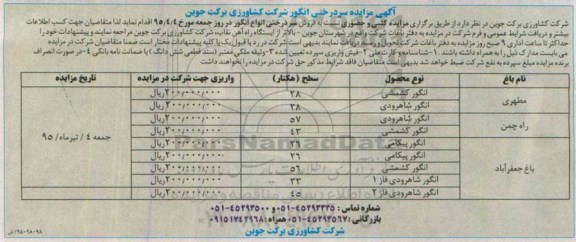 آگهی مزایده سردرختی انگور شرکت کشاورزی برکت جوین
شرکت کشاورزی برکت جوین در نظر دارد از طریق برگزاری مزایده کتبی و حضوری نسبت به فروش سردرختی انواع انگور در روز جمعه مورخ ۹۵/۴/۴ اقدام نماید لذا متقاضیان جهت کسب اطلاعات
بیشتر و دریافت شرایط عمومی و فرم شرکت در مزایده به دفتر باغات شرکت واقع در شهرستان جوین - بالاتر از ایستگاه راه آهن نقاب، شرکت کشاورزی برکت جوین مراجعه نمایند و پیشنهادات خود را
حداکثر تا ساعت اداری ۹ صبح روز مزایده به دفتر باغات شرکت تحویل و رسید دریافت نمایند بدیهی است شرکت در رد یا قبول یک یا کلیه پیشنهادات مختار است ضمنا متقاضیان شرکت در مزایده
می بایست مدارک ذیل را به همراه داشته باشند. ۱- شناسنامه و کارت ملی ۲- فیش واریزی سپرده تعیین شده ۳- وثیقه ملکی معتبر (سند قطعی شش دانگ) یا ضمانت نامه بانکی ۴- در صورت انصراف
برنده مزایده مبلغ سپرده به نفع شرکت ضبط خواهد شد بدیهی است متقاضیان فاقد شرایط مذکور حق شرکت در مزایده را نخواهند داشت
نام باغ نوع محصول سطح (هکتار) واریزی جهت شرکت در مزایده تاریخ مزایده
مطهری انگور کشمشی ۲۸ ۲۰۰/۰۰۰/۰۰۰ریال جمعه ۴ / تیرماه / ۹۵
انگور شاهرودی ۳۸ ۲۰۰/۰۰۰/۰۰۰ریال
راه چمن انگور شاهرودی ۵۷ ۲۰۰/۰۰۰/۰۰۰ریال
انگور کشمشی ۴۳ ۲۰۰/۰۰۰/۰۰۰ریال
باغ جعفرآباد انگور پیکامی ۲۶ ۲۰۰/۰۰۰/۰۰۰ریال
انگور پیکامی ۲۶ ۲۰۰/۰۰۰/۰۰۰ریال
انگور کشمشی ۵۶ ۲۰۰/۰۰۰/۰۰۰ریال
انگور شاهرودی فاز ۱ ۳۳ ۲۰۰/۰۰۰/۰۰۰ریال
انگور شاهرودی فاز ۲ ۴۵ ۲۰۰/۰۰۰/۰۰۰ریال
شماره تماس : ۴۵۲۹۳۳۳۵-۰۵۱ و ۴۵۲۹۳۵۰۰-۰۵۱
بازرگانی: ۴۵۲۹۳۵۶۷-۰۵۱ همراه : ۰۹۱۵۱۷۴۲۹۶۸
شرکت کشاورزی برکت جوین
ParsNamadData